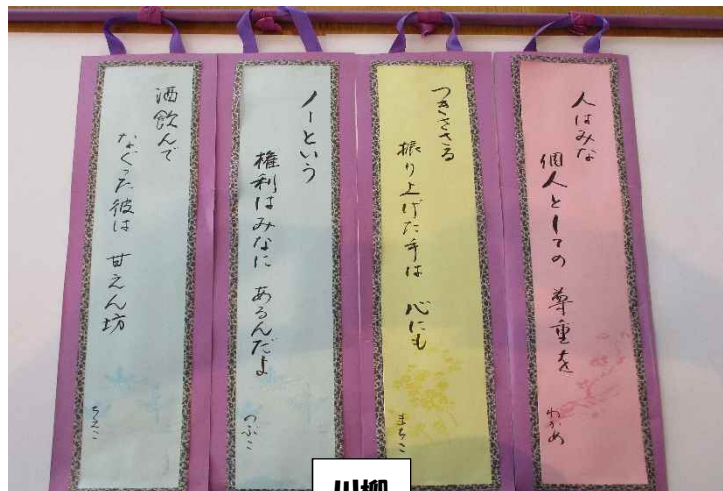 人はみな
個人としての 尊重を
わかめ
つきささる
振り上げた手は 心にも
まちこ
ノーという
権利はみなに あるんだよ
のぶこ
酒飲んで
なぐった彼は 甘えん坊
ちえこ
川柳